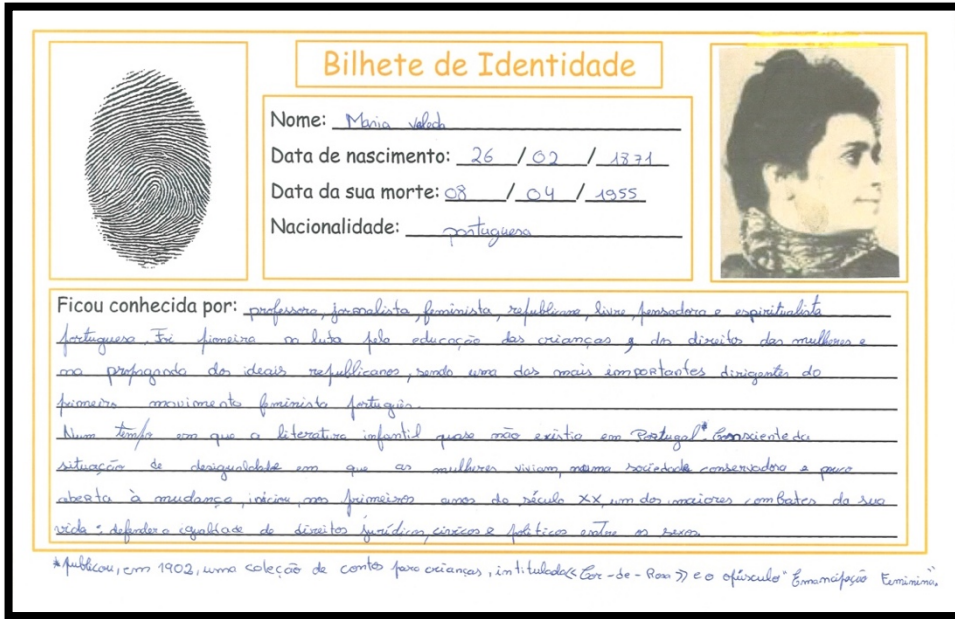 Bilhete de Identidade
Nome: Maria Veleda
Data de nascimento: 26 / 02 / 1871
Data da sua morte: 08 / 04 / 1955
Nacionalidade: portuguesa
Ficou conhecida por: professora, jornalista, feminista, republicana, livre, pensadora e espiritualista
portuguesa. Foi pioneira na luta pela educação das crianças e dos direitos das mulheres e
na propaganda dos ideais republicanos, sendo uma das mais importantes dirigentes do
primeiro movimento feminista português.
Num tempo em que a literatura infantil quase não existia em Portugal* Consciente da
situação de desigualdade em que as mulheres viviam, numa sociedade conservadora e pouco
aberta à mudança, iniciou, nos primeiros anos do século XX, um dos maiores combates da sua
vida: defender a igualdade de direitos jurídicos, cívicos e políticos entre os sexos.
* publicou, em 1902, uma coleção de contos para crianças, intitulada «Cor-de-Rosa» e o opúsculo "Emancipação Feminina".